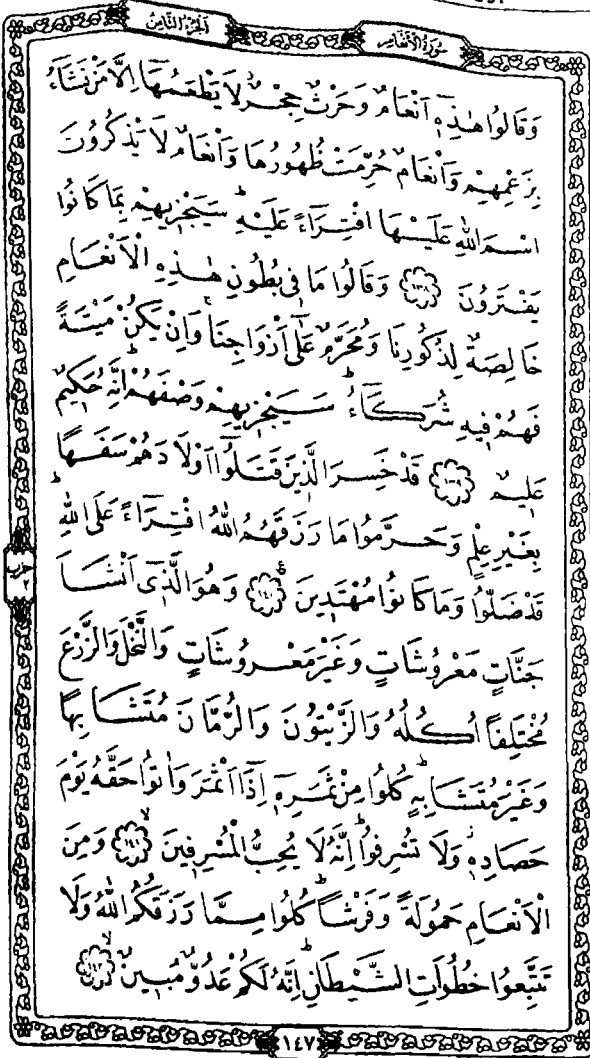 سُورَةُ الْأَنْعَامِ
اَلْجُزْءُ الثَّامِنُ
وَقَالُوا هٰذِهٖٓ اَنْعَامٌ وَحَرْثٌ حِجْرٌ لَا يَطْعَمُهَٓا اِلَّا مَنْ نَشَٓاءُ
بِزَعْمِهِمْ وَاَنْعَامٌ حُرِّمَتْ ظُهُورُهَا وَاَنْعَامٌ لَا يَذْكُرُونَ
اسْمَ اللّٰهِ عَلَيْهَا افْتِرَٓاءً عَلَيْهِۜ سَيَجْزٖيهِمْ بِمَا كَانُوا
يَفْتَرُونَ ﴿١٣٨﴾ وَقَالُوا مَا فٖي بُطُونِ هٰذِهِ الْاَنْعَامِ
خَالِصَةٌ لِذُكُورِنَا وَمُحَرَّمٌ عَلٰٓى اَزْوَاجِنَاۚ وَاِنْ يَكُنْ مَيْتَةً
فَهُمْ فٖيهِ شُرَكَٓاءُۜ سَيَجْزٖيهِمْ وَصْفَهُمْۜ اِنَّهُ حَكٖيمٌ
عَلٖيمٌ ﴿١٣٩﴾ قَدْ خَسِرَ الَّذٖينَ قَتَلُٓوا اَوْلَادَهُمْ سَفَهًا
بِغَيْرِ عِلْمٍ وَحَرَّمُوا مَا رَزَقَهُمُ اللّٰهُ افْتِرَٓاءً عَلَى اللّٰهِۜ
قَدْ ضَلُّوا وَمَا كَانُوا مُهْتَدٖينَ ﴿١٤٠﴾ وَهُوَ الَّذٖٓي اَنْشَاَ
جَنَّاتٍ مَعْرُوشَاتٍ وَغَيْرَ مَعْرُوشَاتٍ وَالنَّخْلَ وَالزَّرْعَ
مُخْتَلِفًا اُكُلُهُ وَالزَّيْتُونَ وَالرُّمَّانَ مُتَشَابِهًا
وَغَيْرَ مُتَشَابِهٍۜ كُلُوا مِنْ ثَمَرِهٖٓ اِذَٓا اَثْمَرَ وَاٰتُوا حَقَّهُ يَوْمَ
حَصَادِهٖۘ وَلَا تُسْرِفُواۜ اِنَّهُ لَا يُحِبُّ الْمُسْرِفٖينَ ﴿١٤١﴾ وَمِنَ
الْاَنْعَامِ حَمُولَةً وَفَرْشًاۜ كُلُوا مِمَّا رَزَقَكُمُ اللّٰهُ وَلَا
تَتَّبِعُوا خُطُوَاتِ الشَّيْطَانِۜ اِنَّهُ لَكُمْ عَدُوٌّ مُبٖينٌ ﴿١٤٢﴾
حزب
٢
١٤٧